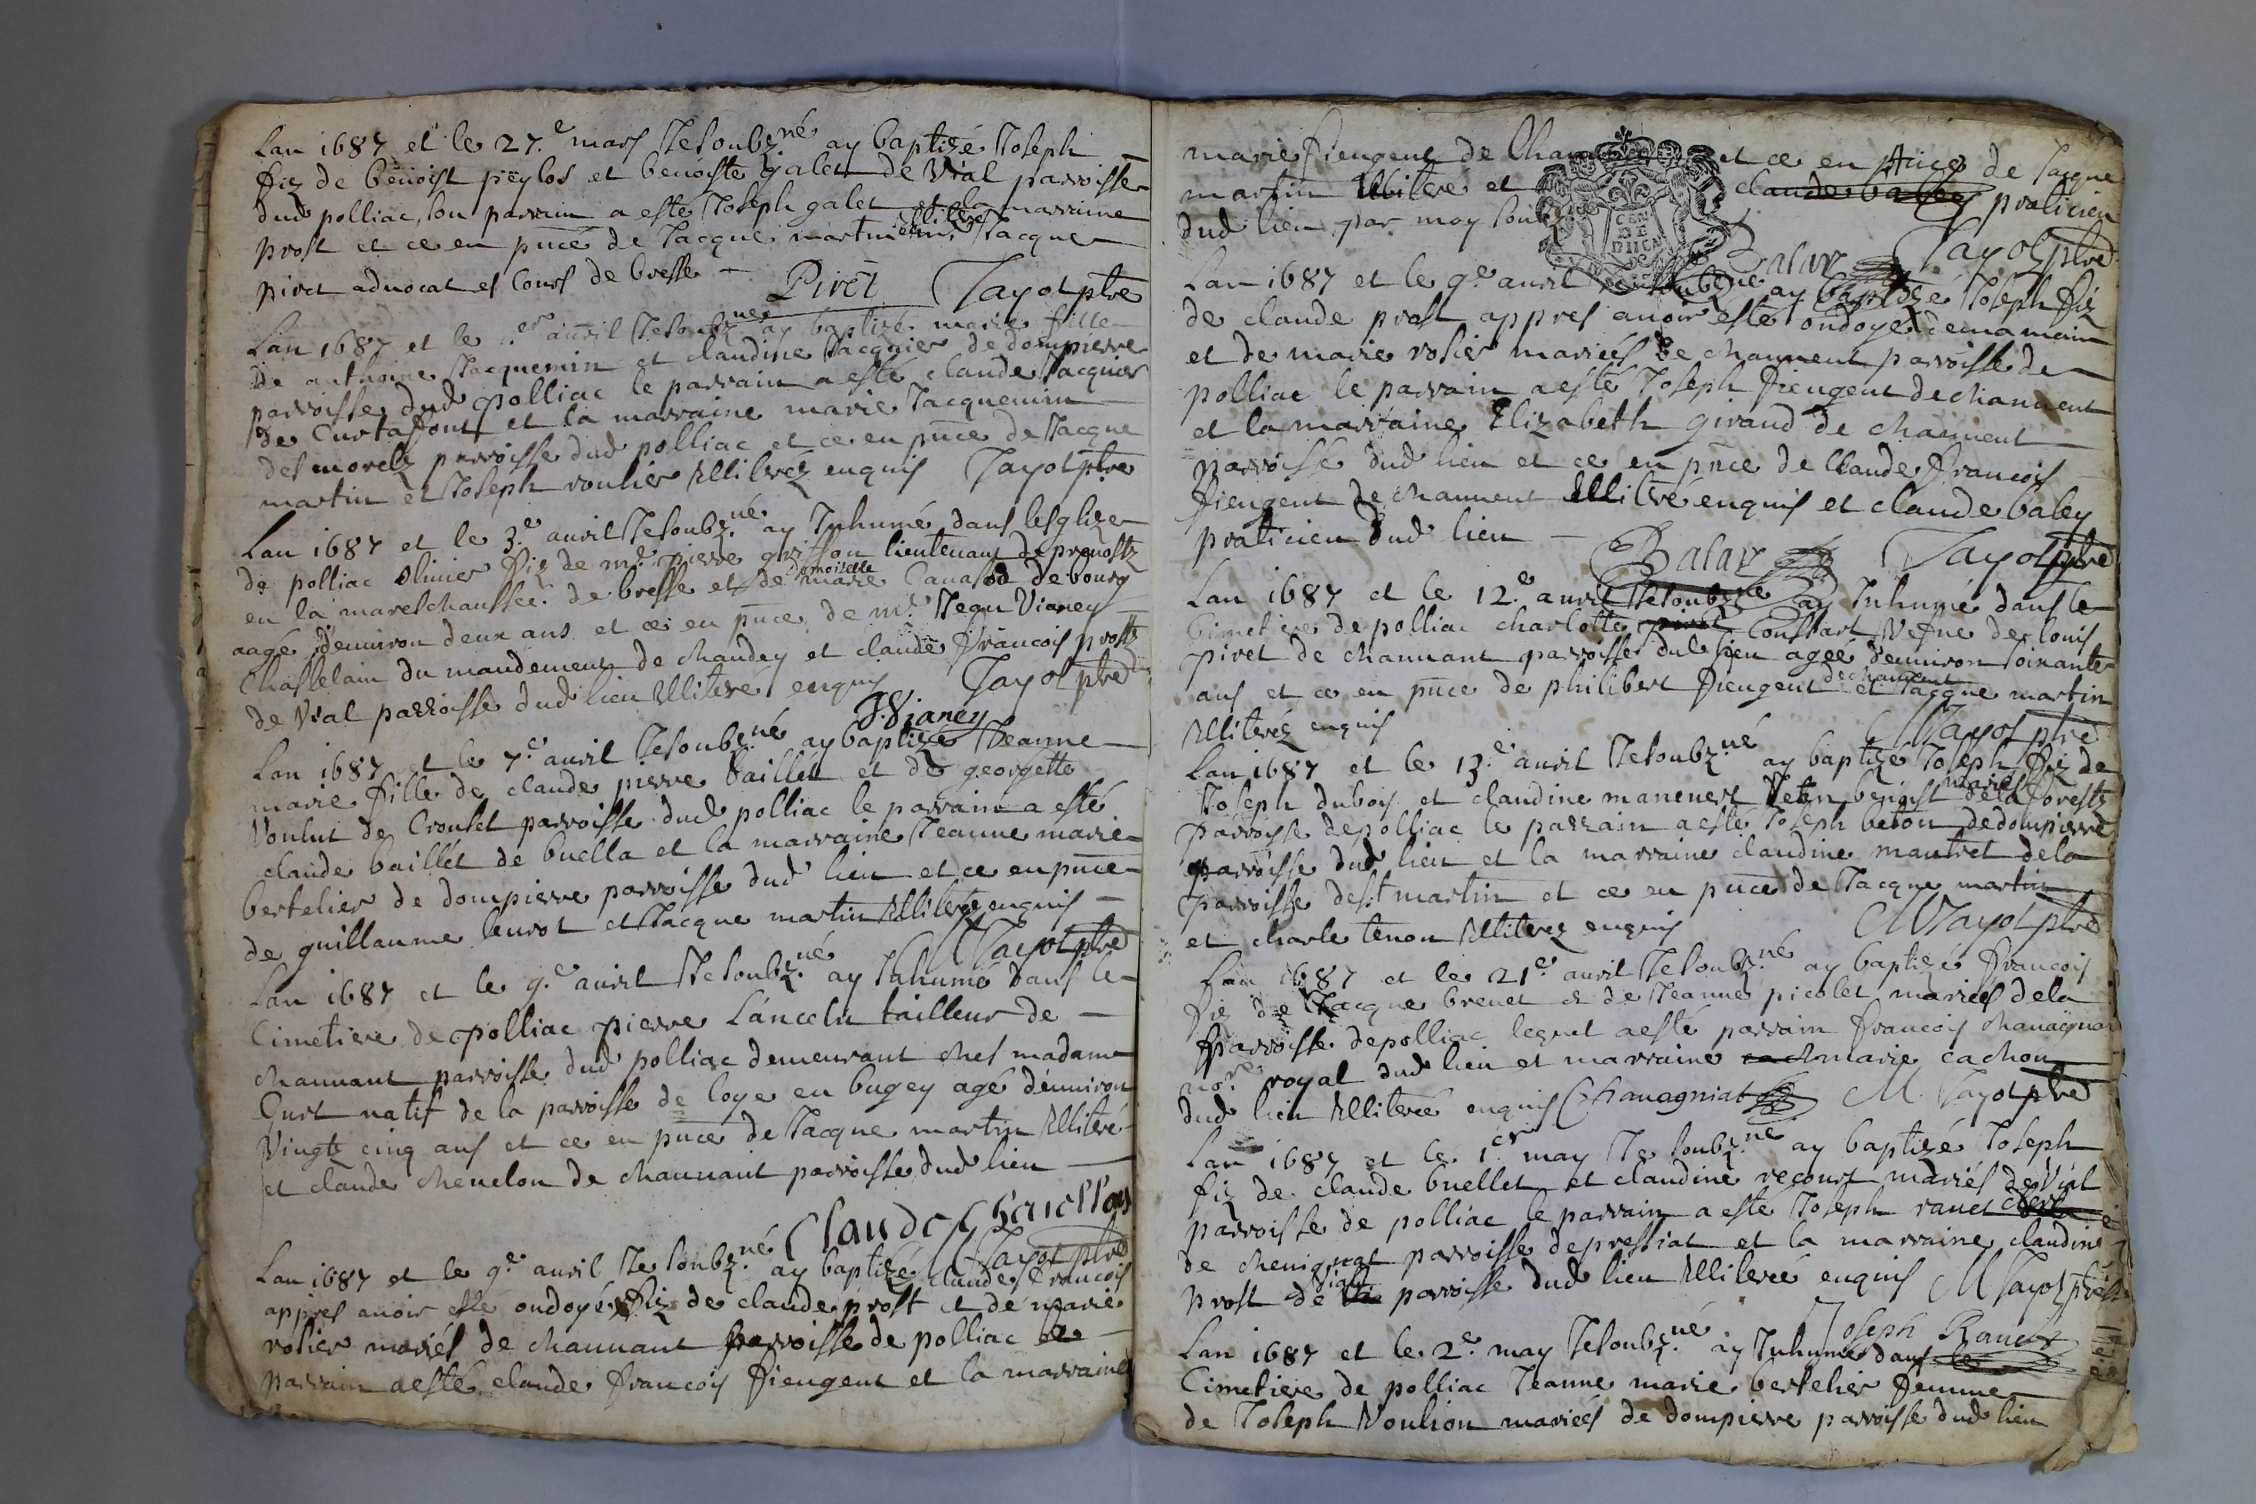 Lan 1687 et le 27.e mars Je soubz.né ay baptizé Joseph
fiz de benoist peylos et benoiste galet de Vial parroisse
dud polliac, son parrain a esté Joseph galet et la marraine
prost et ce en pnce de Jacque martin illiteré Jacque
piret advocat es Cours de bresse
Piret Tayot ptre
Lan 1687 et le er avril Je soubz.né ay baptizé marie fille
de anthoine Jacquemin et claudine Jacquier de dompierre
parroisse dud polliac le parrain a esté claude Jacquier
de Curtafont et la marraine marie Jacquemin
des morelz parroisse dud polliac et ce en pnce de Jacque
martin et Joseph voulier illiterez enquis Tayot ptre
Lan 1687 et le 3.e avril Je soubz.né ay Inhumé dans lesglize
de polliac olivier fiz de mr. pierre grisson lieutenant de prevostz
en la mareschaussée de bresse et de damoiselle marie de bourg
aagé denviron deux ans et ce en pnce de mr. Jean Vianey
Chastelain du mandement de chandey et claude francois prostz
de Vial parroisse dud lieu illiteré enquis Tayot ptre
J. Vianey
Lan 1687 et le 7.e avril Je soubz.né ay baptizé Jeanne
marie fille de claude pierre baillet et de georgette
Voulut de Crouset parroisse dud polliac le parrain a esté
claude baillet de buella et la marraine Jeanne marie
bertelier de dompierre parroisse dud lieu et ce en pnce
de guillaume leurot et Jacque martin illiterez enquis
M Tayot ptre
Lan 1687 et le 9.e avril Je soubz.né ay Inhumé dans le
Cimetiere de polliac pierre Lancelu tailleur de
channant parroisse dud polliac demeurant ches madame
Curt natif de la parroisse de loye en bugey agé denviron
Vingtz cinq ans et ce en pnce de Jacque martin illiteré
et claude chenelon de channant parroisse dud lieu
Claude Chenellon
Tayot ptre
Lan 1687 et le 9.e avril Je soubz.né ay baptizé claude francois
appres avoir esté ondoyé fiz de claude prost et de marie
rosier mariés de channant parroisse de polliac le
parrain a esté claude francois fiengent et la marraine
marie fiengent de et ce en pnce de Jacque
martin illiteré et claude baley praticien
dud lieu par moy soubz
Balay Tayot ptre
Lan 1687 et le 9.e avril soubz.né ay baptizé Joseph fiz
de claude prost appres avoir esté ondoyé de ma main
et de marie rosier mariés de channent parroisse de
polliac le parrain a esté Joseph fiengent de channent
et la marraine Elizabeth giraud de channent
parroisse dud lieu et ce en pnce de Claude francois
fiengent de channent illiteré enquis et claude baley
praticien dud lieu
Balay Tayot ptre
Lan 1687 et le 12.e avril Je soubz.né ay Inhumé dans le
Cimetiere de polliac charlotte Coustart Vefve de louis
piret de channant parroisse dud lieu agée denviron soixante
ans et ce en pnce de philibert fiengent de channent et Jacque martin
illiterez enquis
M Tayot ptre
Lan 1687 et le 13.e avril Je soubz.né ay baptizé Joseph fiz de
Joseph dubois et claudine manenert mariés de la forestz
parroisse de polliac le parrain a esté Joseph beton de dompierre
parroisse dud lieu et la marraine claudine mautret de la
parroisse de st martin et ce en pnce de Jacque martin
et charle tenon illiterez enquis
M Tayot ptre
Lan 1687 et le 21e. avril Je soubz.né ay baptizé francois
fiz de Jacque brevet et de Jeanne picolet mariés de la
parroisse de polliac lequel a esté parrain francois chanagniat
no.re royal dud lieu et marraine marie cachon
dud lieu illiterée enquis Chanagniat M. Tayot ptre
Lan 1687 et le 1.er may Je soubz.né ay baptizé Joseph
fiz de claude buellet et claudine recourt mariés de Vial
parroisse de polliac le parrain a este Joseph ranet
de chenignat parroisse de pressiat et la marraine claudine
prost de Vial parroisse dud lieu illiterée enquis M Tayot ptre
Joseph Ranet
Lan 1687 et le 2.e may Je soubz.né ay Inhumé dans le
Cimetiere de polliac Jeanne marie bertelier femme
de Joseph Voulion mariés de dompierre parroisse dud lieu